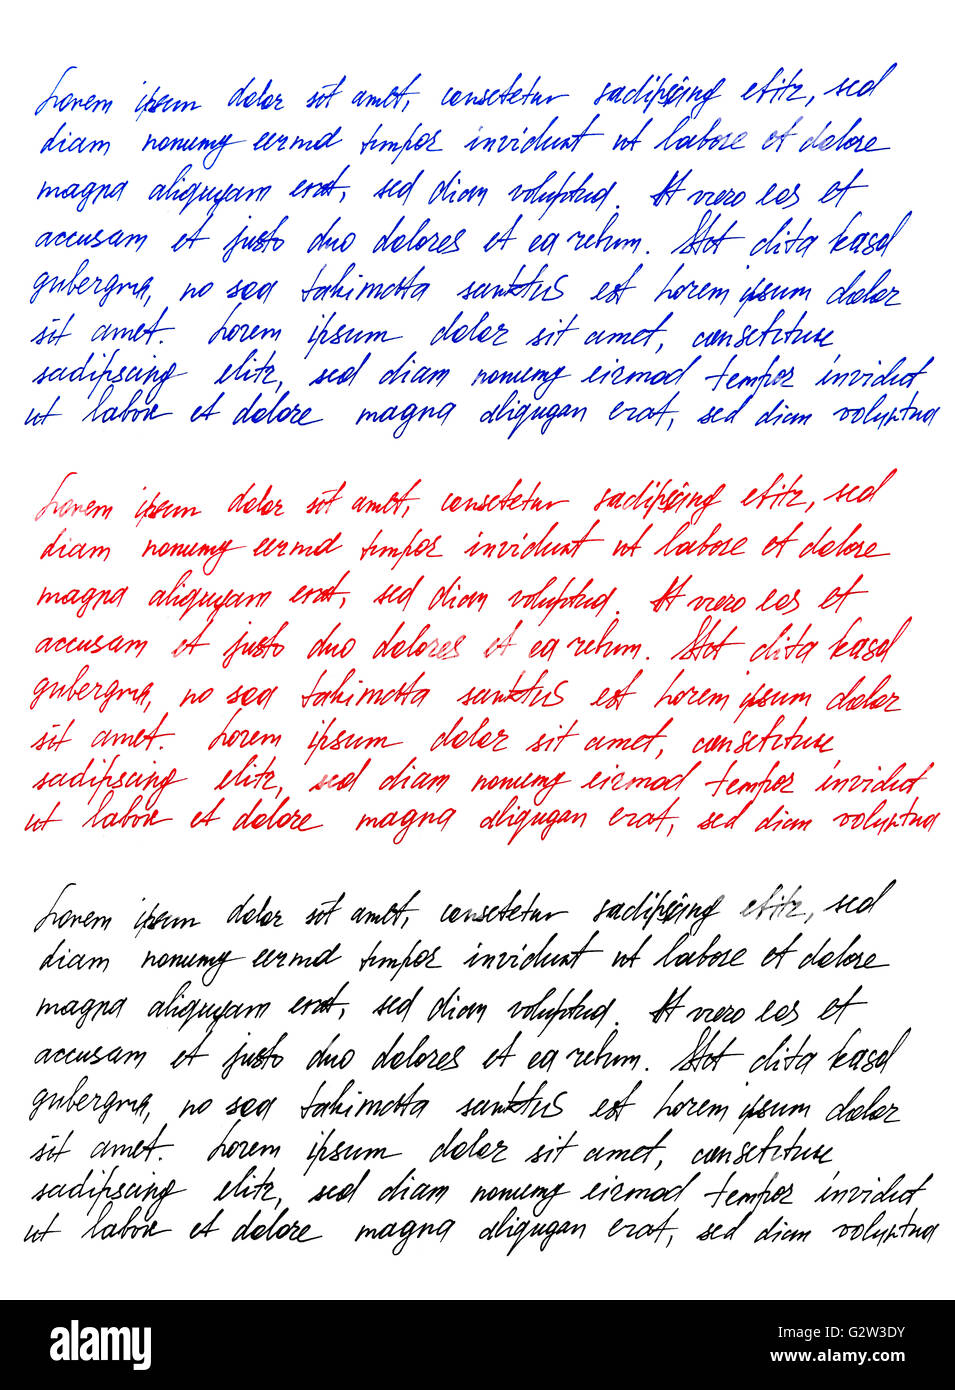 Lorem ipsum dolor sit amet, consetetur sadipscing elitr, sed
diam nonumy eirmod tempor invidunt ut labore et dolore
magna aliquyam erat, sed diam voluptua. At vero eos et
accusam et justo duo dolores et ea rebum. Stet clita kasd
gubergren, no sea takimata sanktus est Lorem ipsum dolor
sit amet. Lorem ipsum dolor sit amet, consetetur
sadipscing elitr, sed diam nonumy eirmod tempor invidut
ut labore et dolore magna aliqugan erat, sed diam voluptua
Lorem ipsum dolor sit amet, consetetur sadipscing elitr, sed
diam nonumy eirmod tempor invidunt ut labore et dolore
magna aliquyam erat, sed diam voluptua. At vero eos et
accusam et justo duo dolores et ea rebum. Stet clita kasd
gubergren, no sea takimata sanktus est Lorem ipsum dolor
sit amet. Lorem ipsum dolor sit amet, consetetur
sadipscing elitr, sed diam nonumy eirmod tempor invidut
ut labore et dolore magna aliqugan erat, sed diam voluptua
Lorem ipsum dolor sit amet, consetetur sadipscing elitr, sed
diam nonumy eirmod tempor invidunt ut labore et dolore
magna aliquyam erat, sed diam voluptua. At vero eos et
accusam et justo duo dolores et ea rebum. Stet clita kasd
gubergren, no sea takimata sanktus est Lorem ipsum dolor
sit amet. Lorem ipsum dolor sit amet, consetetur
sadipscing elitr, sed diam nonumy eirmod tempor invidut
ut labore et dolore magna aliqugan erat, sed diam voluptua
alamy
Image ID: G2W3DY
www.alamy.com